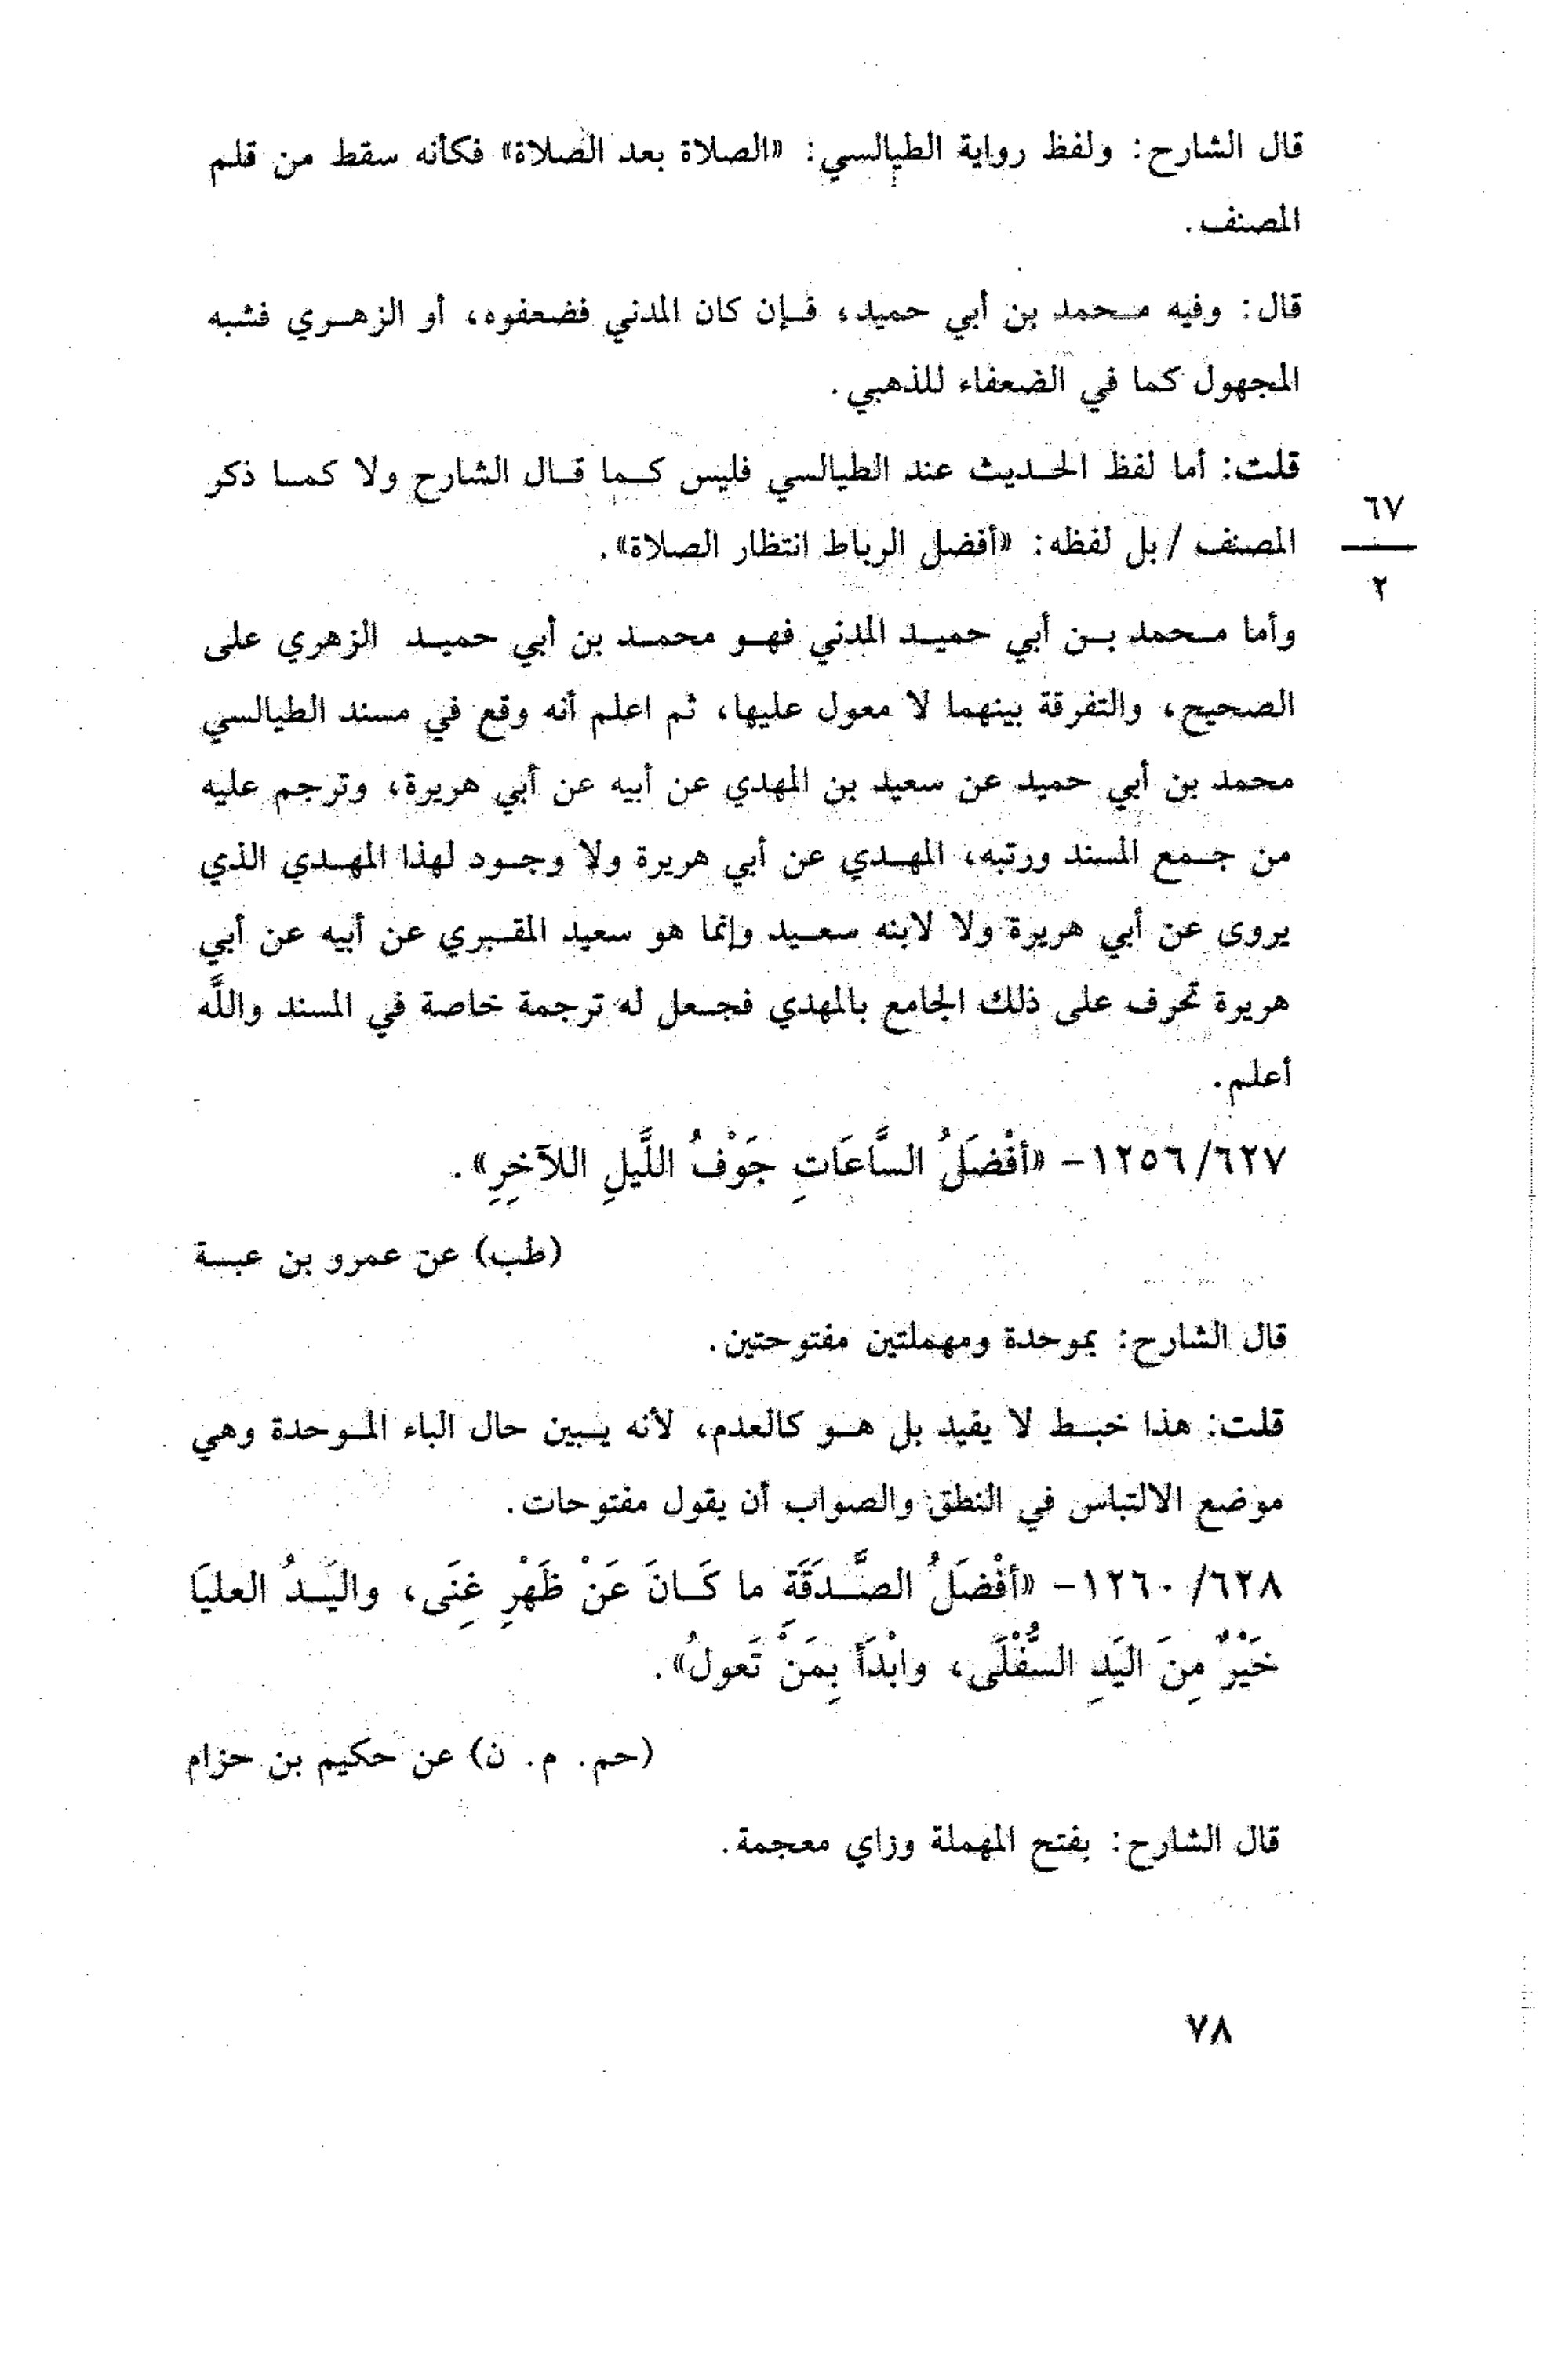 قال الشارح: ولفظ رواية الطيالسي: «الصلاة بعد الصلاة» فكأنه سقط من قلم
المصنف.
قال: وفيه محمد بن أبي حميد، فإن كان المدني فضعفوه، أو الزهري فشبه
المجهول كما في الضعفاء للذهبي.
قلت: أما لفظ الحديث عند الطيالسي فليس كما قال الشارح ولا كما ذكر
٦٧
المصنف / بل لفظه: «أفضل الرباط انتظار الصلاة».
٢
وأما محمد بن أبي حميد المدني فهو محمد بن أبي حميد الزهري على
الصحيح، والتفرقة بينهما لا معول عليها، ثم اعلم أنه وقع في مسند الطيالسي
محمد بن أبي حميد عن سعيد بن المهدي عن أبيه عن أبي هريرة، وترجم عليه
من جمع المسند ورتبه، المهدي عن أبي هريرة ولا وجود لهذا المهدي الذي
يروى عن أبي هريرة ولا لابنه سعيد وإنما هو سعيد المقبري عن أبيه عن أبي
هريرة تحرف على ذلك الجامع بالمهدي فجعل له ترجمة خاصة في المسند واللَّه
أعلم.
٦٢٧/ ١٢٥٦- «أفْضَلُ السَّاعَاتِ جَوْفُ اللَّيلِ اللآخِرِ».
(طب) عن عمرو بن عبسة
قال الشارح: بموحدة ومهملتين مفتوحتين.
قلت: هذا خبط لا يفيد بل هو كالعدم، لأنه يبين حال الباء الموحدة وهي
موضع الالتباس في النطق والصواب أن يقول مفتوحات.
٦٢٨/ ١٢٦٠- «أفْضَلُ الصَّدَقَةِ ما كَانَ عَنْ ظَهْرِ غِنَى، واليَدُ العليَا
خَيْرٌ مِنَ اليَدِ السُّفْلَى، وابْدَأ بِمَنْ تَعولُ».
(حم. م. ن) عن حكيم بن حزام
قال الشارح: بفتح المهملة وزاي معجمة.
٧٨